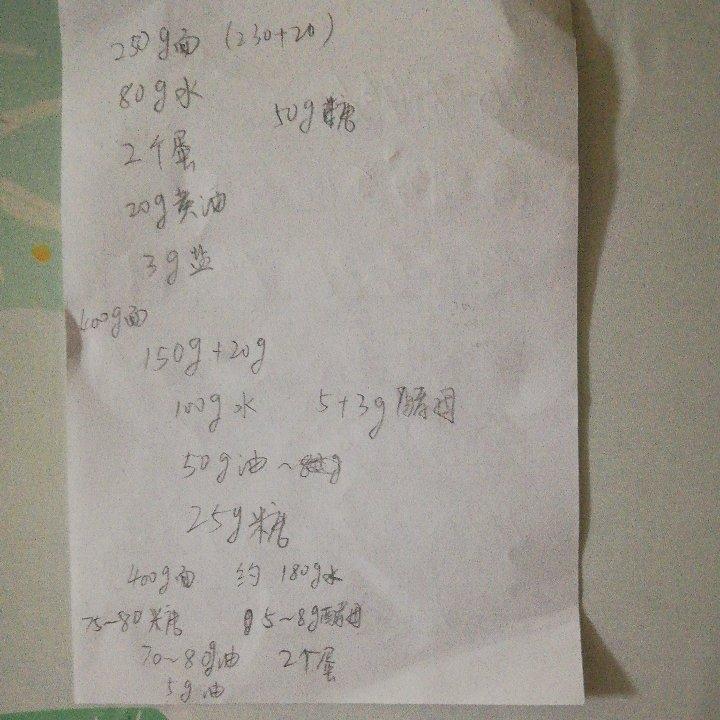 250g面 (230+20)
80g水
50g糖
2个蛋
20g黄油
3g盐
400g面
150g+20g
100g水 5+3g酵母
50g油~
25g糖
400g面 约 180g水
75~80糖 5~8g酵母
70~80g油 2个蛋
5g油